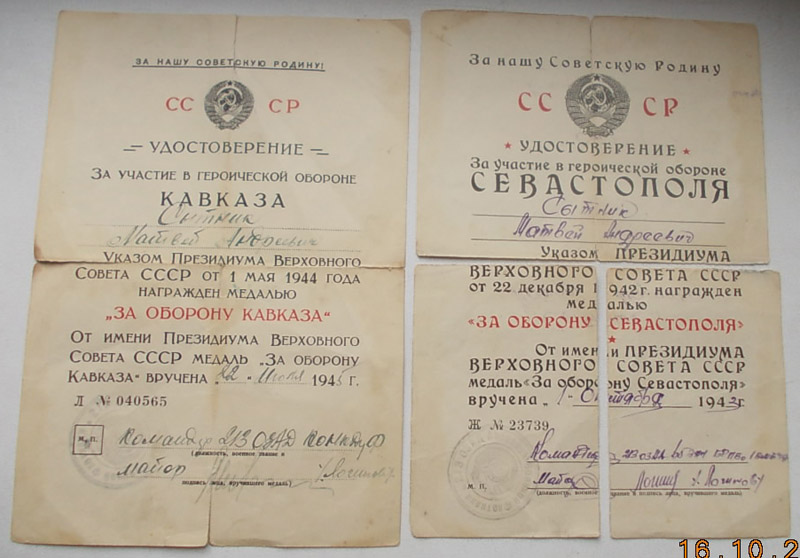 ЗА НАШУ СОВЕТСКУЮ РОДИНУ!
СС СР
УДОСТОВЕРЕНИЕ
ЗА УЧАСТИЕ В ГЕРОИЧЕСКОЙ ОБОРОНЕ
КАВКАЗА
Сытник
Матвей Андреевич
УКАЗОМ ПРЕЗИДИУМА ВЕРХОВНОГО
СОВЕТА СССР ОТ 1 МАЯ 1944 ГОДА
НАГРАЖДЕН МЕДАЛЬЮ
„ЗА ОБОРОНУ КАВКАЗА“
ОТ ИМЕНИ ПРЕЗИДИУМА ВЕРХОВНОГО
СОВЕТА СССР МЕДАЛЬ „ЗА ОБОРОНУ
КАВКАЗА“ ВРУЧЕНА „22 1945 г.
Л № 040565
М. П.
Командир 213 ОЗАД
(должность, военное звание и
майор
подпись лица, вручившего медаль)
За нашу Советскую Родину
СС СР
УДОСТОВЕРЕНИЕ
За участие в героической обороне
СЕВАСТОПОЛЯ
Сытник
Матвей Андреевич
Указом ПРЕЗИДИУМА
ВЕРХОВНОГО СОВЕТА СССР
от 22 декабря 1942 г. награжден
медалью
«ЗА ОБОРОНУ СЕВАСТОПОЛЯ»
От имени ПРЕЗИДИУМА
ВЕРХОВНОГО СОВЕТА СССР
медаль «За оборону Севастополя»
вручена „ 1 - Октября 1943 г.
Ж № 23739
Командир 213 ОЗАД
М. П.
Майор
(должность, военное звание и подпись лица, вручившего медаль)
16.10.2